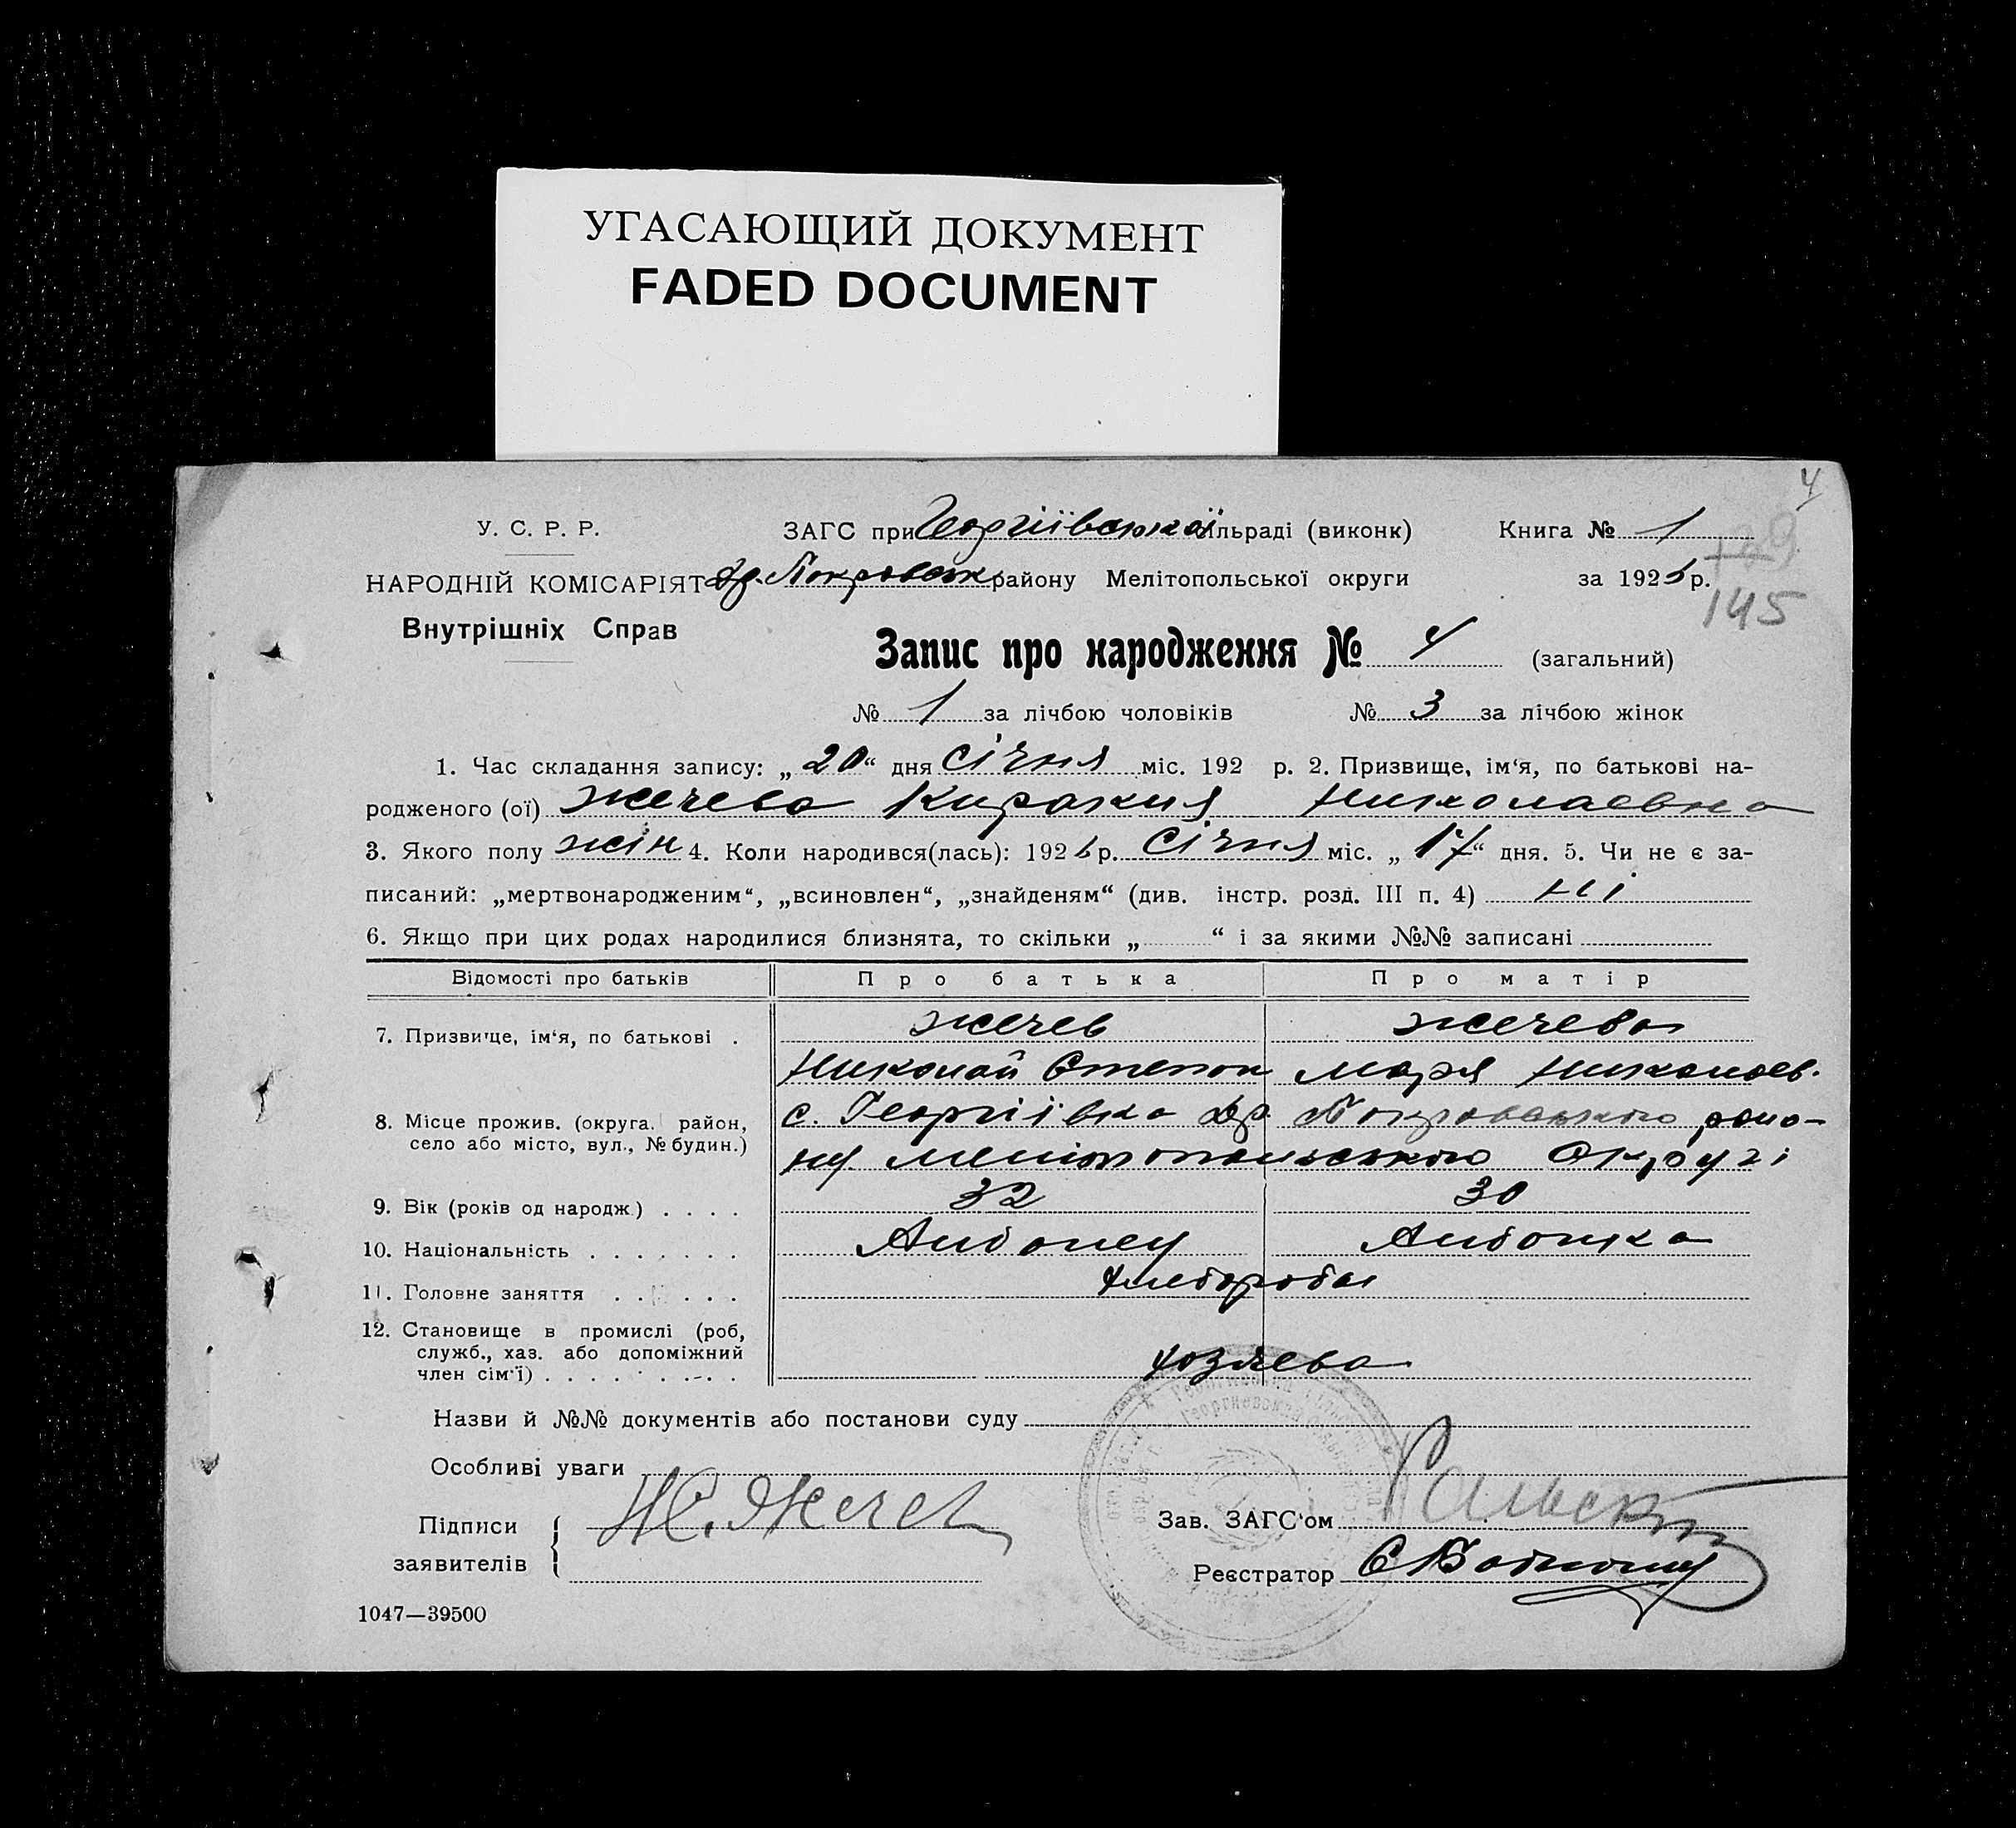 УГАСАЮЩИЙ ДОКУМЕНТ
FADED DOCUMENT
4
У. С. Р. Р.
ЗАГС при Георгіївській сільраді (виконк)
Книга № 1
129
НАРОДНІЙ КОМІСАРІЯТ
Др. Покровськ району Мелітопольської округи
за 1926 р.
145
Внутрішніх Справ
Запис про народження № 4 (загальний)
№ 1 за лічбою чоловіків № 3 за лічбою жінок
1. Час складання запису: „20“ дня Січня міс. 192 р. 2. Призвище, ім'я, по батькові на-
родженого (ої) Жечева Киракия Николаевна
3. Якого полу жін 4. Коли народився(лась): 1926 р. Січня міс. „17“ дня. 5. Чи не є за-
писаний: „мертвонародженим“, „всиновлен“, „знайденям“ (див. інстр. розд. III п. 4) ні
6. Якщо при цих родах народилися близнята, то скільки „ “ і за якими №№ записані
Відомості про батьків Про батька Про матір
7. Призвище, ім'я, по батькові . Жечев Жечева
Николай Степан Маря Николаев.
8. Місце прожив. (округа, район, с. Георгіївка Др. Покровського райо-
село або місто, вул., № будин.) ну Мелітопольської Округи
9. Вік (років од народж.) . . . . 32 30
10. Національність . . . . . . . Албанец Албанка
11. Головне заняття . . . . . . Хлебороба
12. Становище в промислі (роб,
служб., хаз. або допоміжний
член сім'ї) . . . . . . . . . хозяева
Назви й №№ документів або постанови суду
Особливі уваги
Підписи
Н. Жечев
Зав. ЗАГС'ом
заявителів
Реєстратор
1047—39500